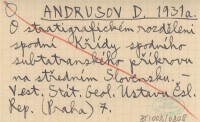 ANDRUSOV D. 1931a.
O stratigrafickém rozdělení
spodní Křídy spodního
subtatranského příkrovu
na středním Slovensku. –
Věst. Stát. Geol. Ústavu Čsl.
Rep. (Praha) 7.